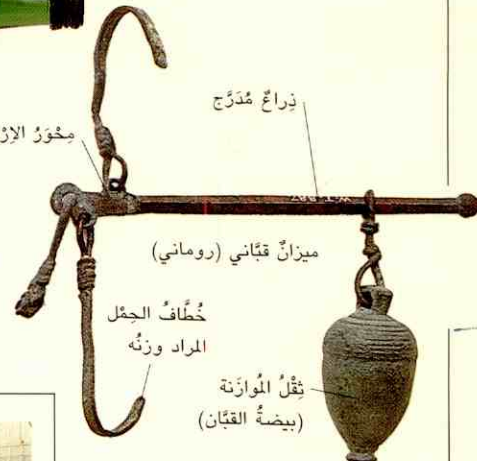 ذِراعٌ مُدَرَّج
مِحْوَرُ
ميزانٌ قبَّاني (روماني)
خُطَّافُ الحِمْل
المراد وزنُه
ثِقْلُ المُوازَنة
(بيضةُ القبَّان)